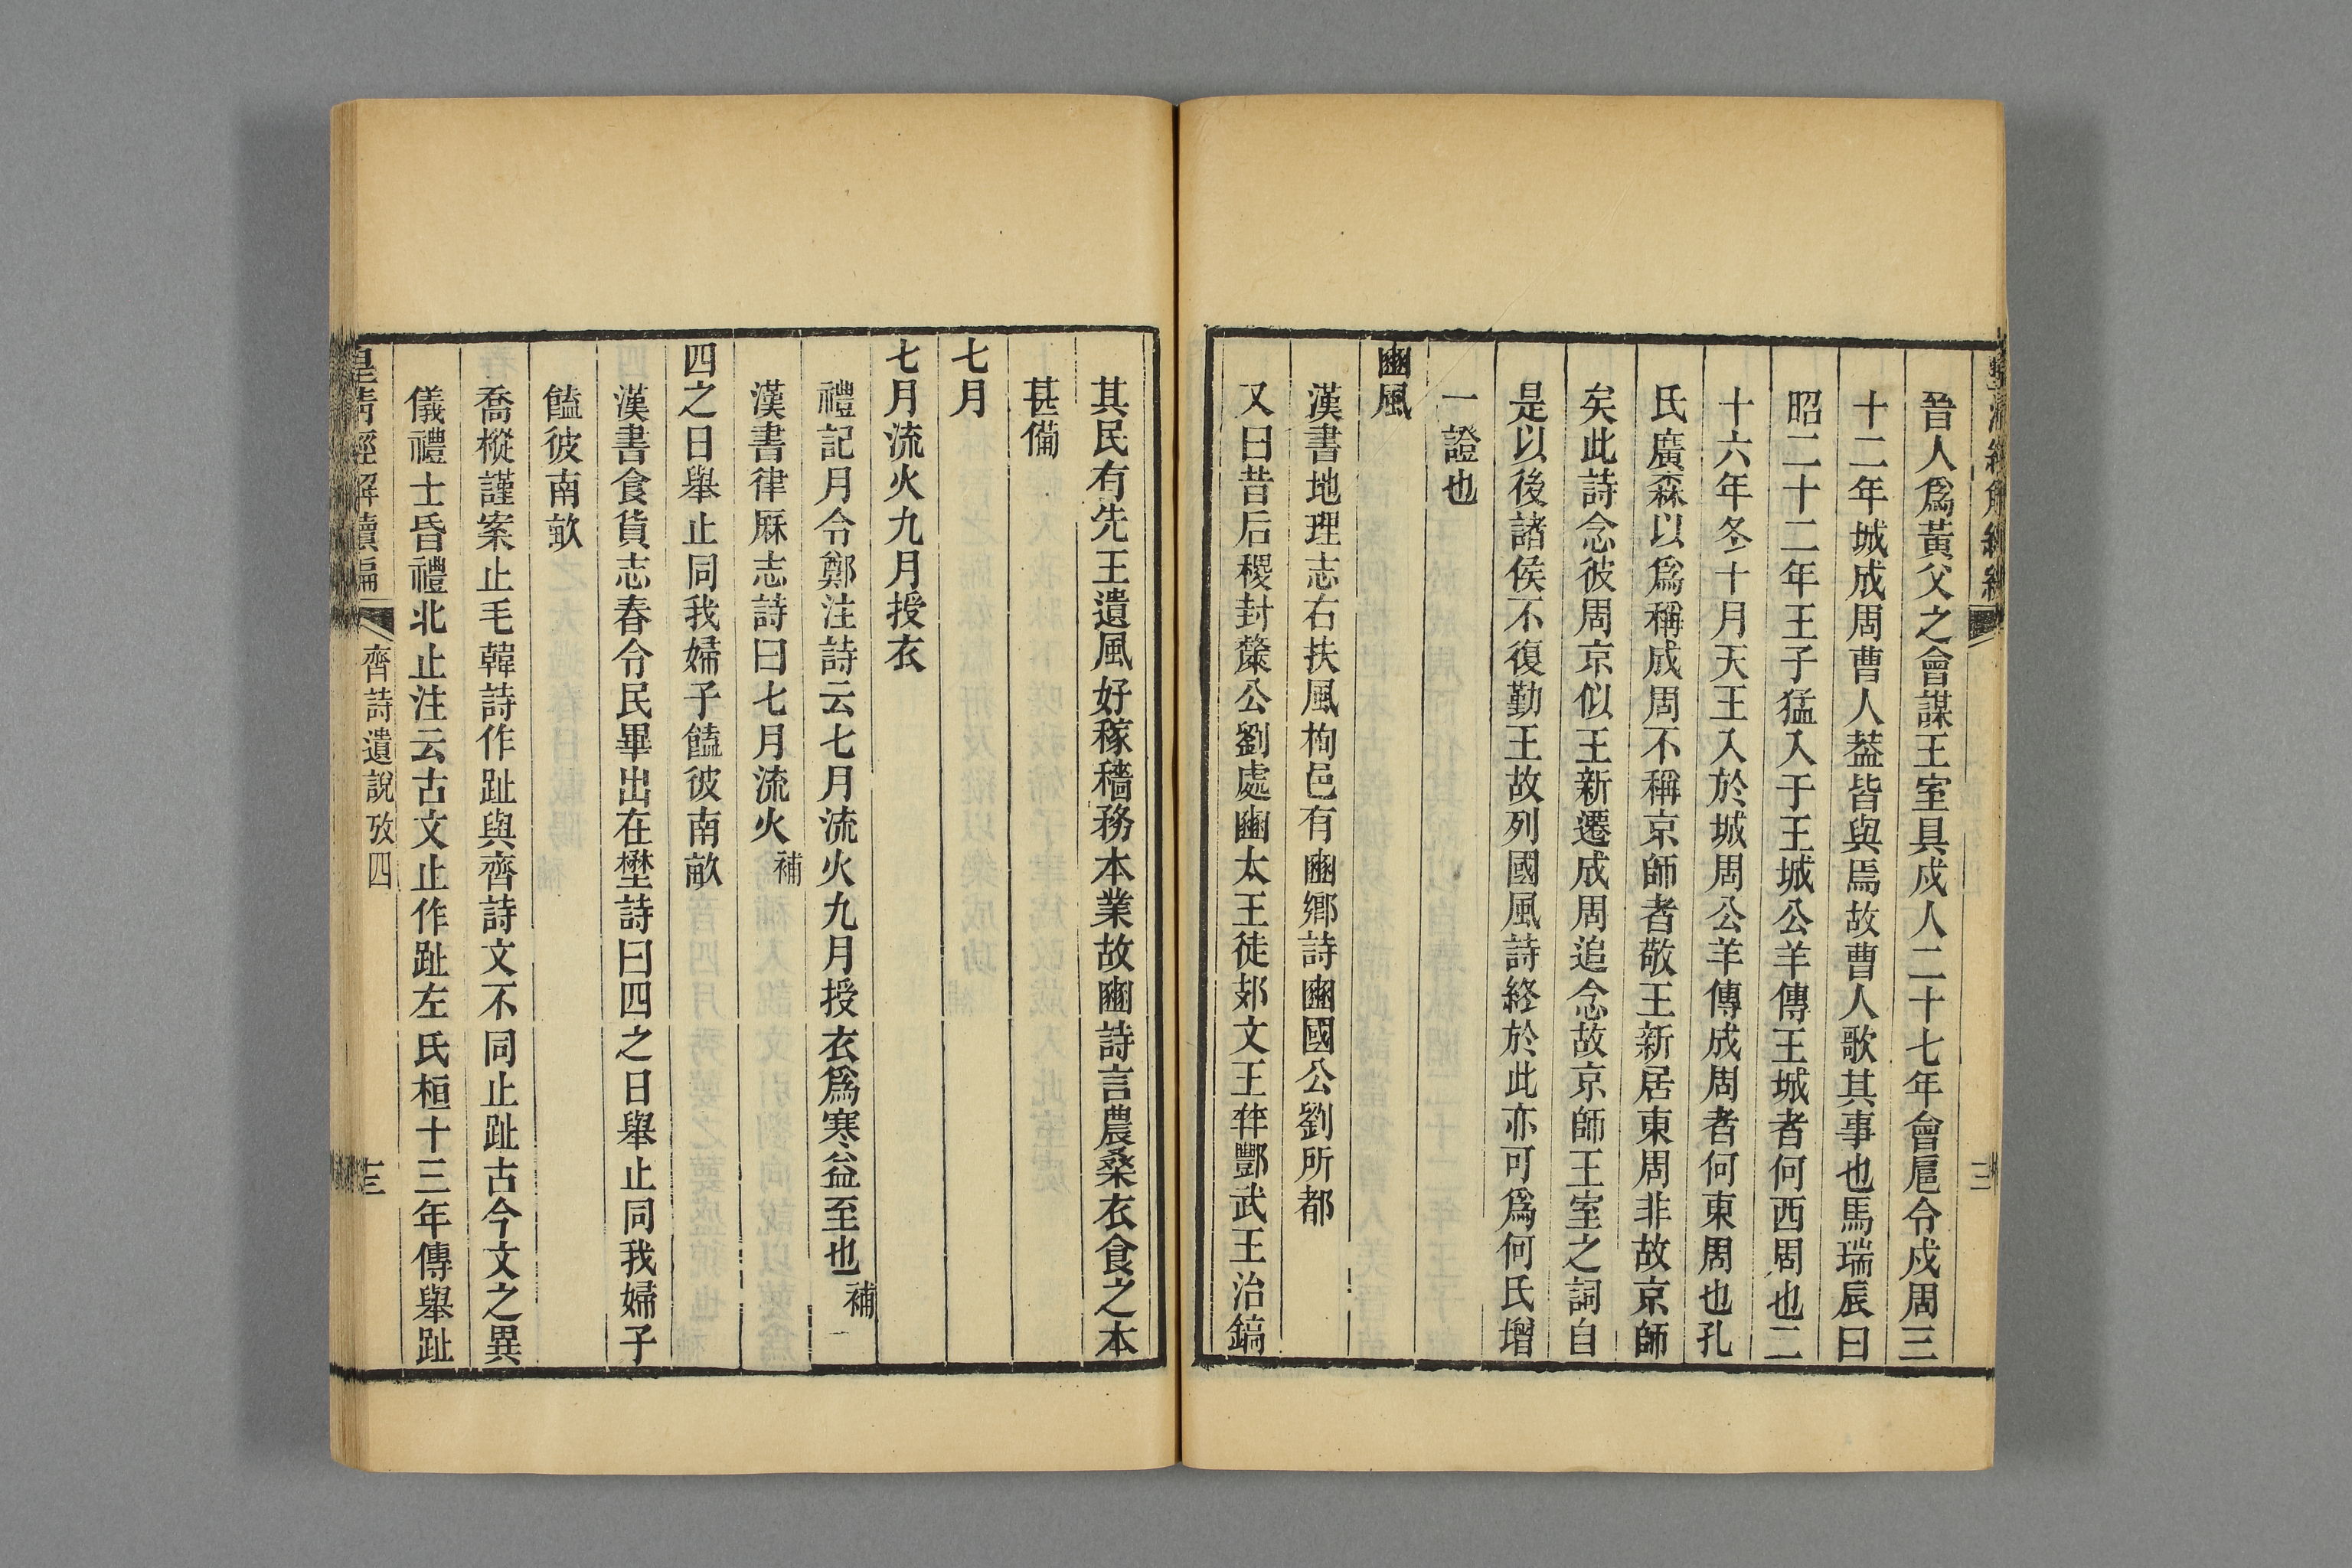 晉人爲黃父之會謀王室具戍人二十七年會扈令戍周三
十二年城成周曹人葢皆與焉故曹人歌其事也馬瑞辰曰
昭二十二年王子猛入于王城公羊傳王城者何西周也二
十六年冬十月天王入於城周公羊傳成周者何東周也孔
氏廣森以爲稱成周不稱京師者敬王新居東周非故京師
矣此詩念彼周京似王新遷成周追念故京師王室之詞自
是以後諸侯不復勤王故列國風詩終於此亦可爲何氏增
一證也
豳風
漢書地理志右扶風栒邑有豳鄉詩豳國公劉所都
又曰昔后稷封斄公劉處豳太王徙䢴文王作酆武王治鎬
其民有先王遺風好稼穡務本業故豳詩言農桑衣食之本
甚備
七月
七月流火九月授衣
禮記月令鄭注詩云七月流火九月授衣爲寒益至也補
漢書律厤志詩曰七月流火補
四之日舉止同我婦子饁彼南畝
漢書食貨志春令民畢出在壄詩曰四之日舉止同我婦子
饁彼南畝
喬樅謹案止毛韓詩作趾與齊詩文不同止趾古今文之異
儀禮士昏禮北止注云古文止作趾左氏桓十三年傳舉趾
皇淸經解續編
齊詩遺說攷四